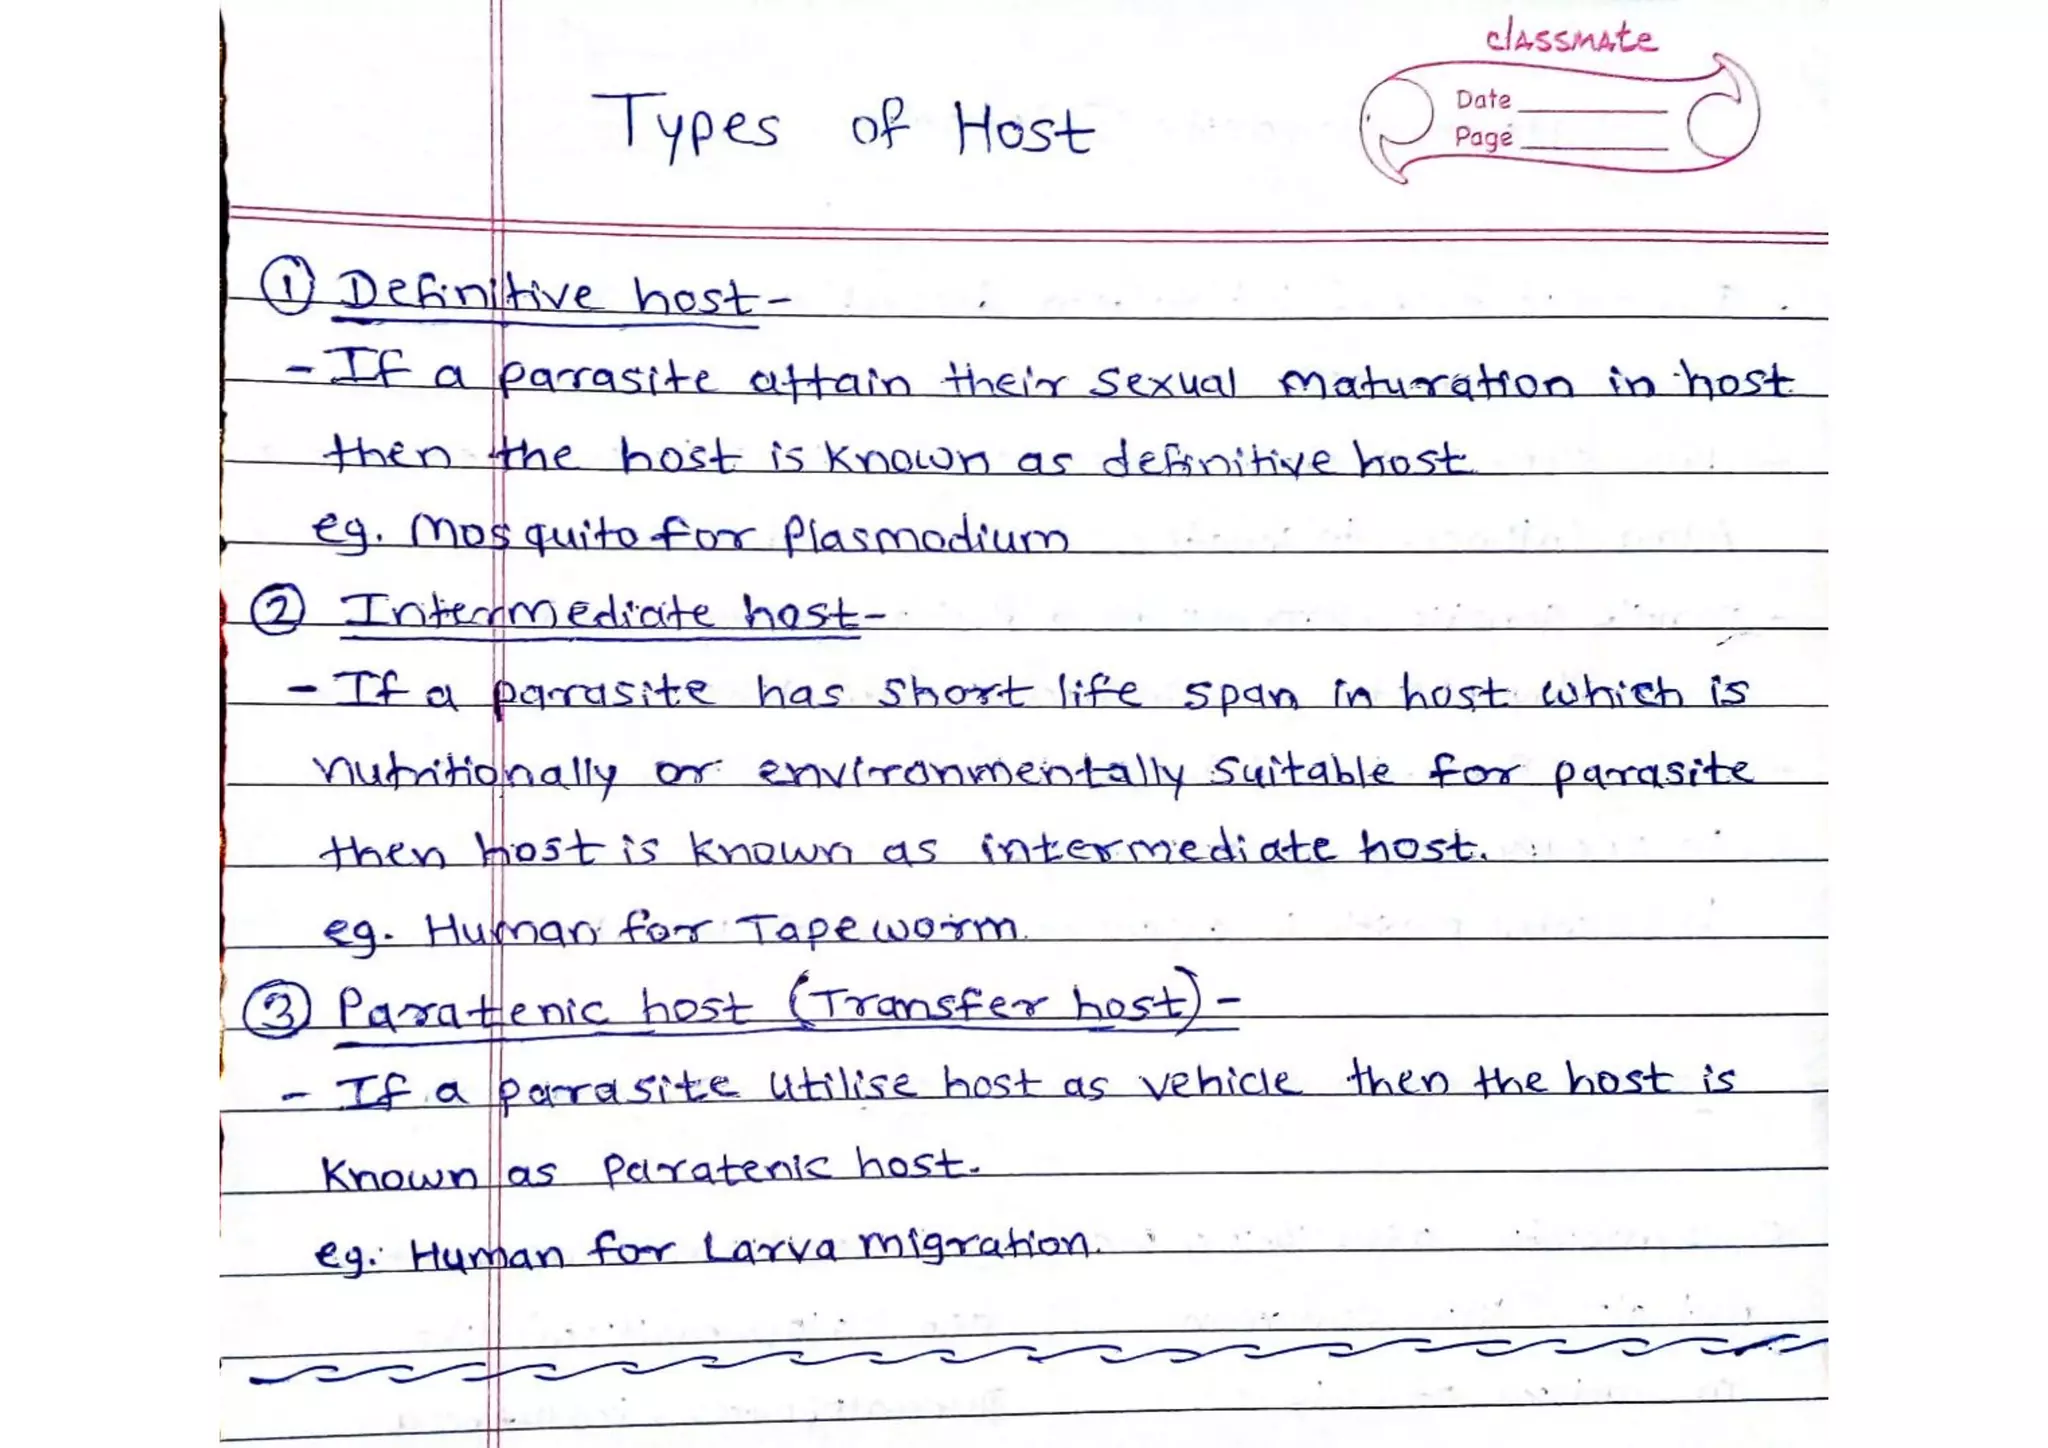 classmate
Date
Page
Types of Host
① Definitive host-
- If a parasite attain their sexual maturation in host
then the host is known as definitive host
eg. Mosquito for Plasmodium
② Intermediate host-
- If a parasite has short life span in host which is
nutritionally or environmentally suitable for parasite
then host is known as intermediate host.
eg. Human for Tapeworm.
③ Paratenic host (Transfer host) -
- If a parasite utilise host as vehicle then the host is
Known as Paratenic host.
eg. Human for Larva migration.